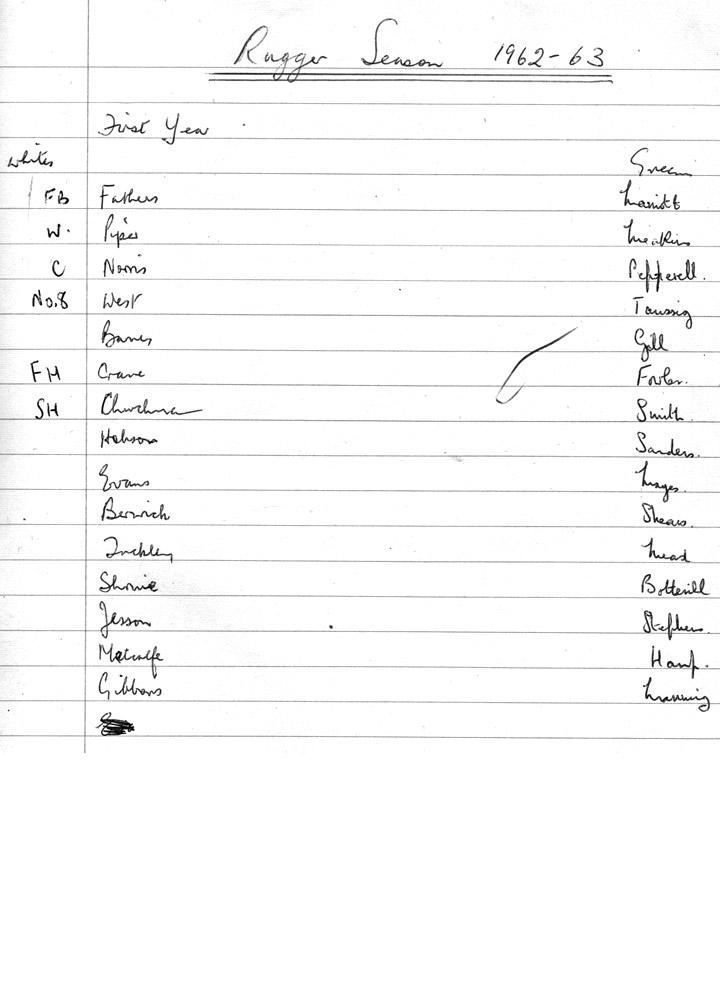 Rugger Season 1962-63
First Year
Whites Green
FB Fathers Marriott
W. Piper Meakins
C Norris Pepperell.
No.8 West Taussig
Barnes Gill
FH Crane Fowler.
SH Churchman Smith
Hobson Sanders.
Evans Mayes.
Berwick Shears.
Inchley Mead
Botterill
Jesson Stephens.
Metcalfe Hanf.
Gibbons Manning